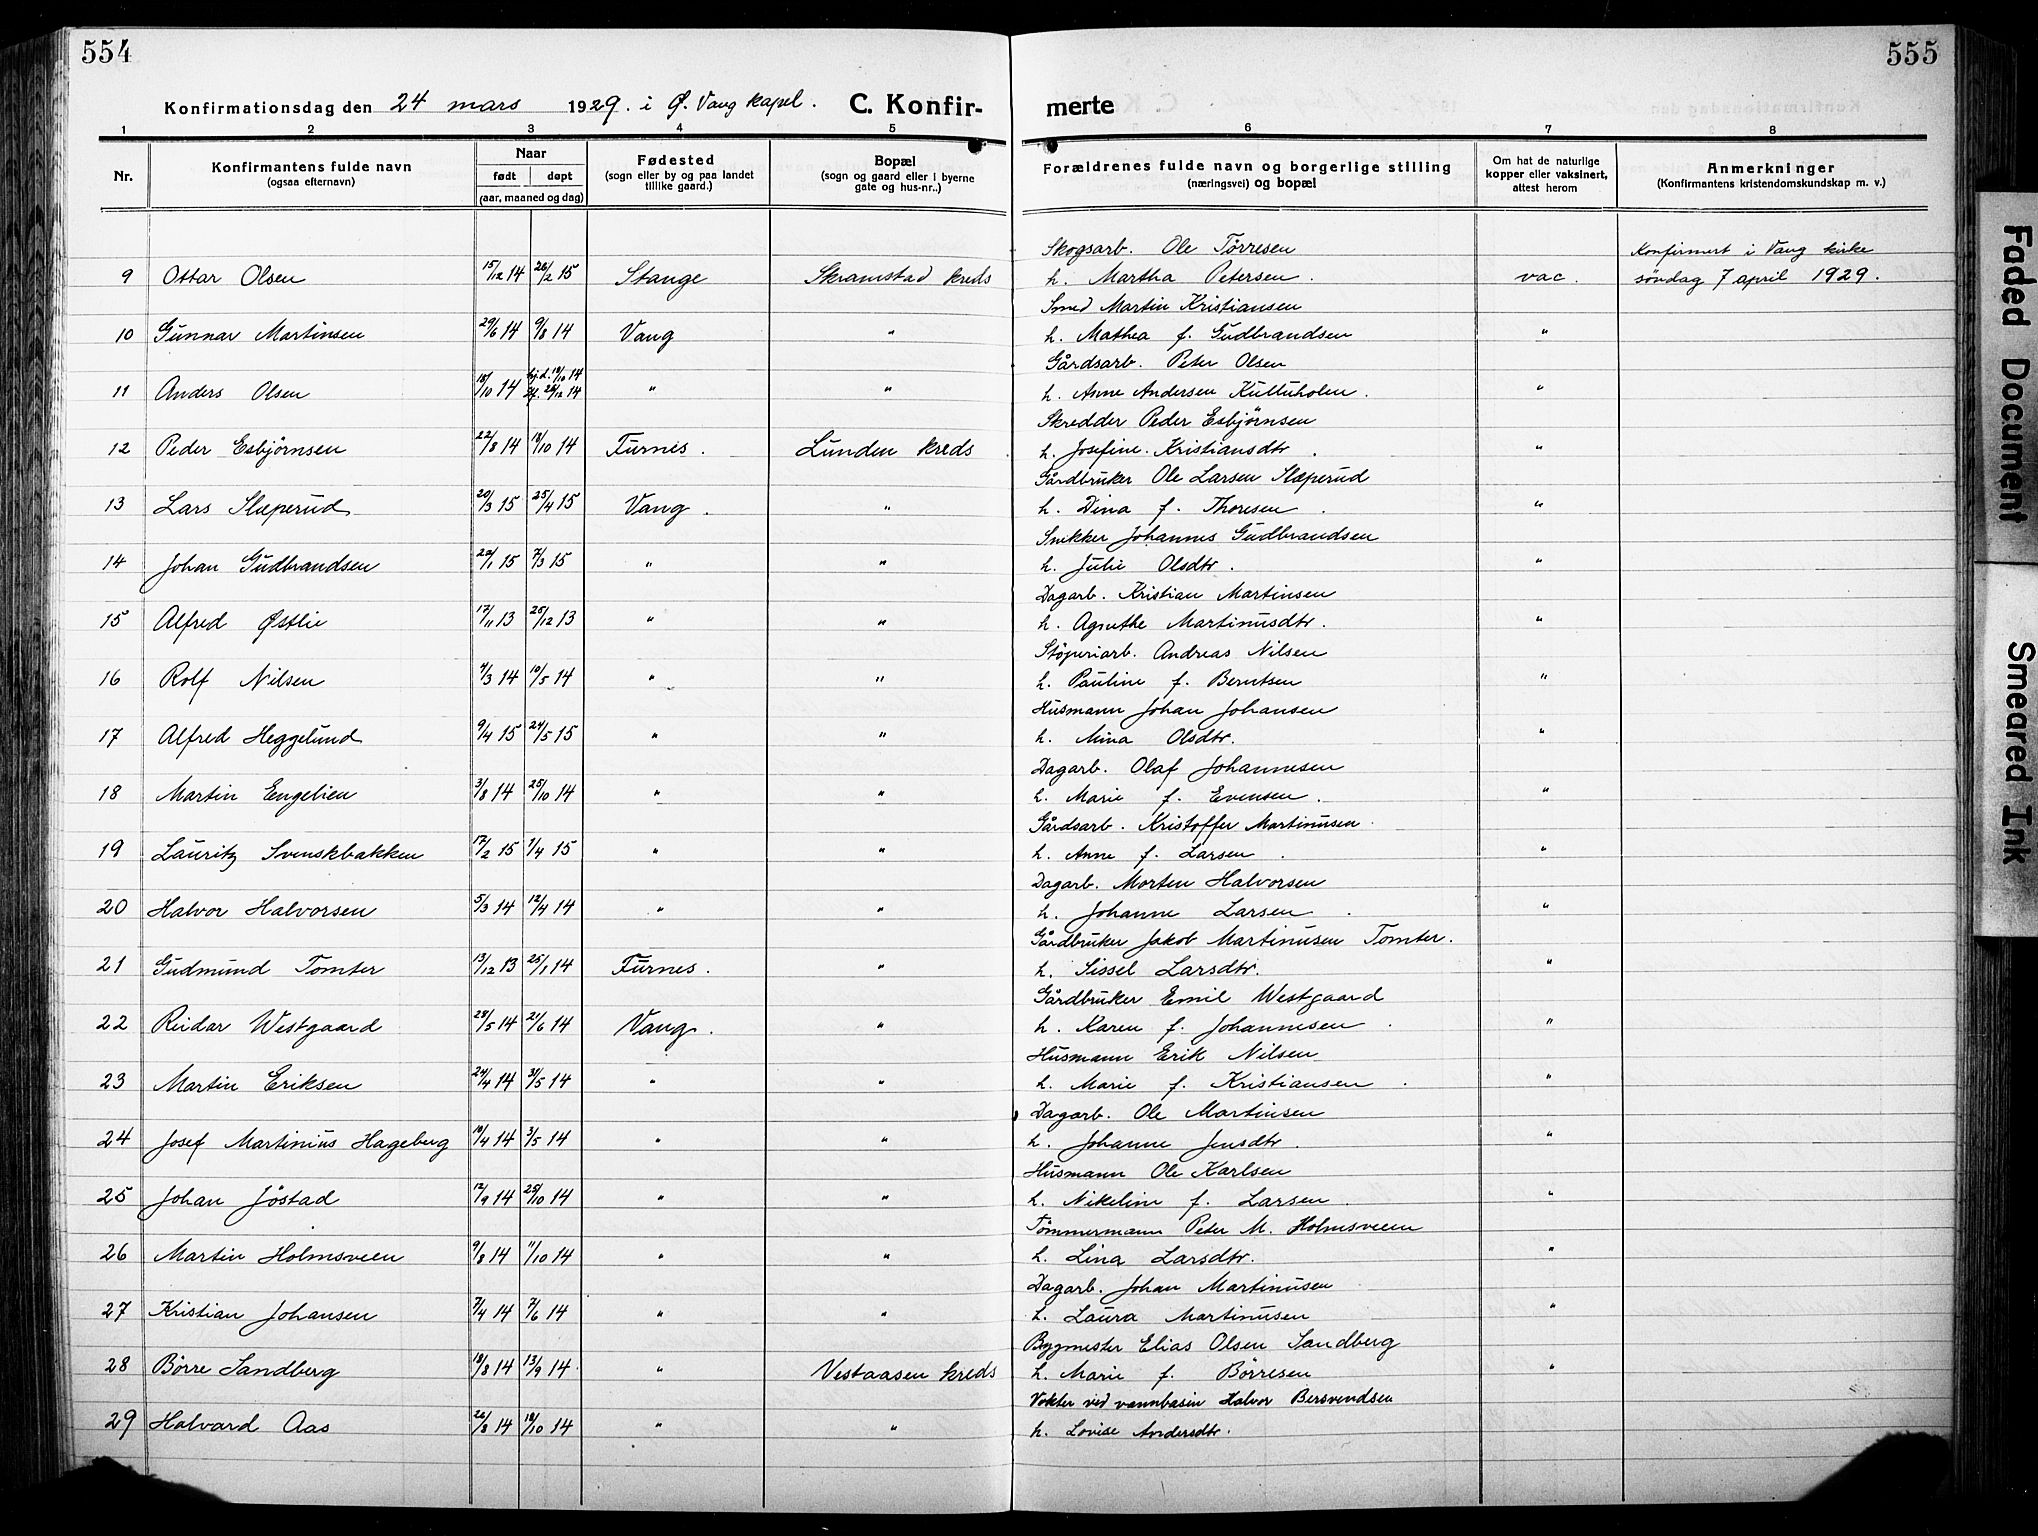 554
555
Konfirmationsdag den 24 mars 1929. i Ø. Vang kapel. C. Konfir-
merte
1 2 3 4 5 6 7 8
Nr.
Konfirmantens fulde navn
(ogsaa efternavn)
Naar
født døpt
(aar, maaned og dag)
Fødested
(sogn eller by og paa landet
tillike gaard.)
Bopæl
(sogn og gaard eller i byerne
gate og hus-nr..)
Forældrenes fulde navn og borgerlige stilling
(næringsvei) og bopæl
Om hat de naturlige
kopper eller vaksinert,
attest herom
Anmerkninger
(Konfirmantens kristendomskundskap m. v.)
Skogsarb. Ole Tørresen Konfirmert i Vang kirke
9 Ottar Olsen 15/12 14 26/2 15 Stange Skramstad kreds h. Martha Petersen. vac. söndag 7 april 1929.
Smed Martin Kristiansen
10 Gunnar Martinsen 29/6 14 9/8 14 Vang " h. Mathea f. Gudbrandsen "
Gårdsarb. Peter Olsen
hj.d. 18/10 14
11 Anders Olsen 15/10 14 26/12 14 " " h. Anne Andersen Kultuholen. "
Skredder Peder Esbjörnsen
12 Peder Esbjörnsen 22/8 14 18/10 14 Furnes. Lunden kreds h. Josefine Kristiansdtr. "
Gårdbruker Ole Larsen Slæperud
13 Lars Slæperud 20/3 15 25/4 15 Vang. " h. Dina f. Thoresen. "
Snekker Johannes Gudbrandsen
14 Johan Gudbrandsen 20/1 15 7/3 15 " " h. Julie Olsdtr. "
Dagarb. Kristian Martinsen
15 Alfred Østlie 17/11 13 26/12 13 " " h. Agnethe Martinusdtr. "
Støperiarb. Andreas Nilsen
16 Rolf Nilsen 4/3 14 10/5 14 " " h. Pauline f. Berntsen "
Husmann Johan Johansen
17 Alfred Heggelund 9/4 15 24/5 15 " " h. Mina Olsdtr. "
Dagarb. Olaf Johannesen
18 Martin Engelien 3/8 14 25/10 14 " " h. Marie f. Evensen. "
Gårdsarb. Kristoffer Martinusen.
19 Lauritz Svenskbakken 17/2 15 /4 15 " " h. Anne f. Larsen. "
Dagarb. Morten Halvorsen
20 Halvor Halvorsen 5/3 14 12/4 14 " " h. Johanne Larsen. "
Gårdbruker Jakob Martinusen Tomter.
21 Gudmund Tomter 13/12 13 25/1 14 Furnes. " h. Sissel Larsdtr. "
Gårdbruker Emil Westgaard
22 Reidar Westgaard 28/5 14 21/6 14 Vang. " h. Karen f. Johannesen. "
Husmann Erik Nilsen
23 Martin Eriksen 24/4 14 31/5 14 " " h. Marie f. Kristiansen. "
Dagarb. Ole Martinsen
24 Josef Martinius Hageberg 10/4 14 3/5 14 " " h. Johanne Jensdtr. "
Husmann Ole Karlsen
25 Johan Jöstad 12/9 14 25/10 14 " " h. Nikeline f. Larsen. "
Tömmermann Peter M. Holmsveen
26 Martin Holmsveen 9/8 14 11/10 14 " " h. Lina Larsdtr. "
Dagarb. Johan Martinusen
27 Kristian Johansen 7/4 14 7/6 14 " " h. Laura Martinusen "
Bygmester Elias Olsen Sandberg
28 Börre Sandberg 18/8 14 13/9 14. " Vestaasen kreds h. Marie f. Börresen "
Vokter ved vannbasin Halvor Bersvendsen
29 Halvard Aas 26/8 14 18/10 14 " " h. Lovise Andersdtr.
Faded Document
Smeared Ink